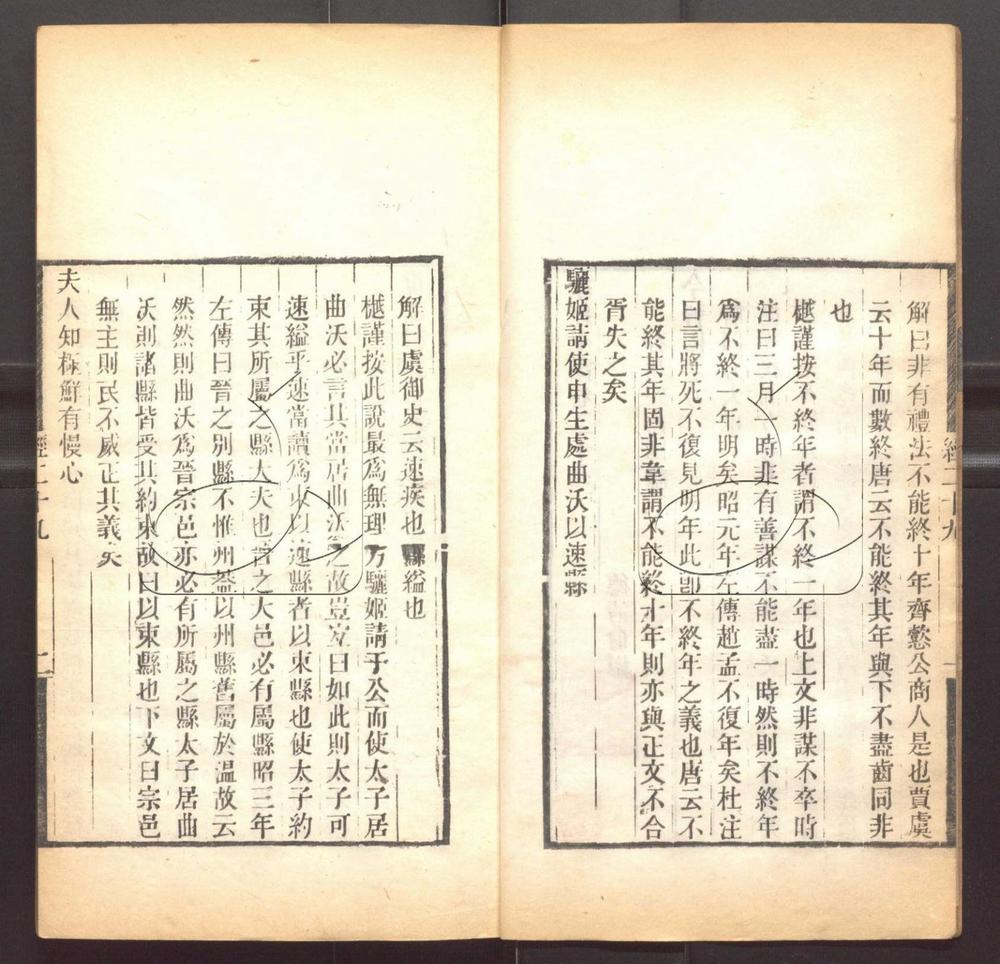 解曰非有禮法不能終十年齊懿公商人是也賈虞
云十年而數終唐云不能終其年與下不盡齒同非
也
樾謹按不終年者謂不終一年也上文非謀不卒時
注曰三月一時非有善謀不能盡一時然則不終年
爲不終一年明矣昭元年左傳趙孟不復年矣杜注
曰言將死不復見明年此卽不終年之義也唐云不
能終其年固非韋謂不能終十年則亦與正文不合
胥失之矣
驪姬請使申生處曲沃以速縣
解曰虞御史云速疾也縣縊也
樾謹按此說最爲無理方驪姬請于公而使太子居
曲沃必言其當居曲沃之故豈宜曰如此則太子可
速縊乎速當讀爲束以速縣者以束縣也使太子約
束其所屬之縣大夫也晉之大邑必有屬縣昭三年
左傳曰晉之別縣不惟州蓋以州縣舊屬於溫故云
然然則曲沃爲晉宗邑亦必有所屬之縣太子居曲
沃則諸縣皆受其約束故曰以束縣也下文曰宗邑
無主則民不威正其義矣
夫人知極鮮有慢心
經二十九
一
經二十九
二